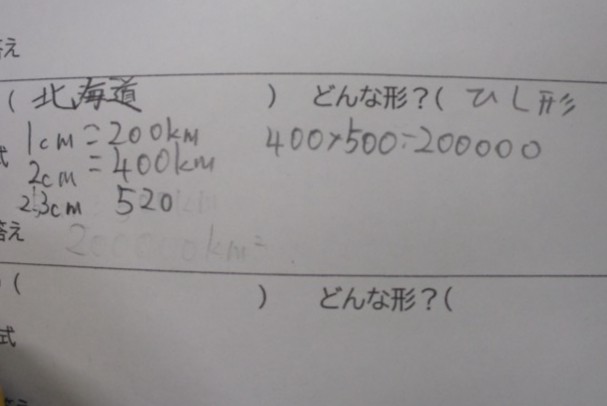 答え
( 北海道 ) どんな形?( ひし形
式 1cm=200km 400×500=200000
2cm=400km
2.3cm 520
答え 200000km²
( ) どんな形?(
式
答え